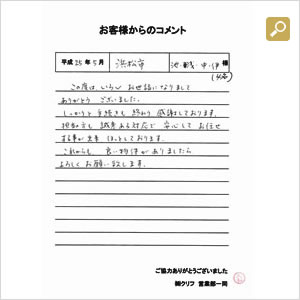 お客様からのコメント
平成 25年 5月 浜松市 様
この度は、いろいろ お世話になりまして
ありがとう ございました。
しっかりと 手続きも 終わり 感謝しております。
担当方も 誠実ある対応で 安心して お任せ
する事が出来 ほっとしております。
これからも、良い物件がありましたら
よろしく お願い致します。
ご協力ありがとうございました
㈱クリフ 営業部一同